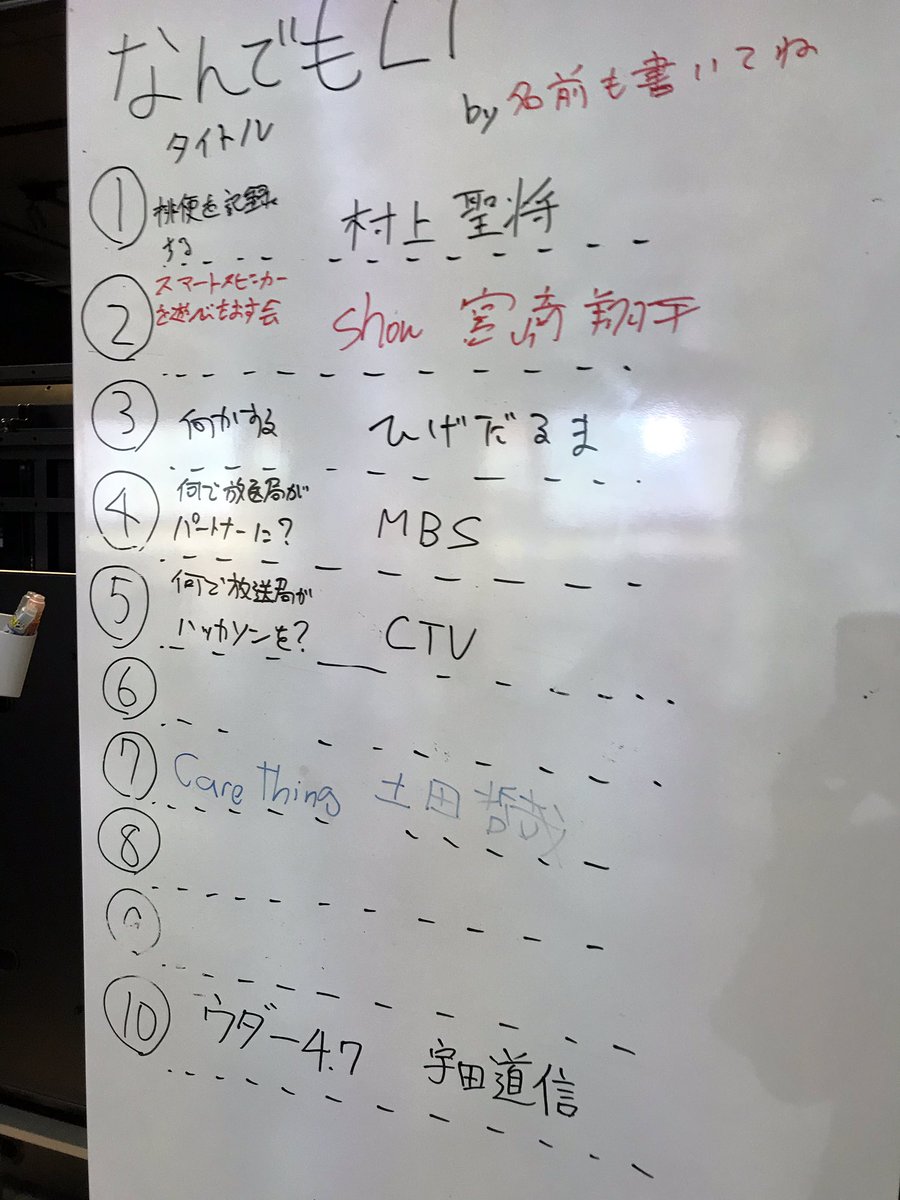 なんでもLT
by 名前も書いてね
タイトル
① 排便を記録
する
村上 聖将
② スマートスピーカー
を遊びたおす会
show 宮崎 翔平
③ 何かする ひげだるま
④ 何で放送局が
パートナーに? MBS
⑤ 何で放送局が
ハッカソンを? CTV
⑥
⑦ Care thing 土田 哲哉
⑧
⑩ ウダー4.7 宇田道信